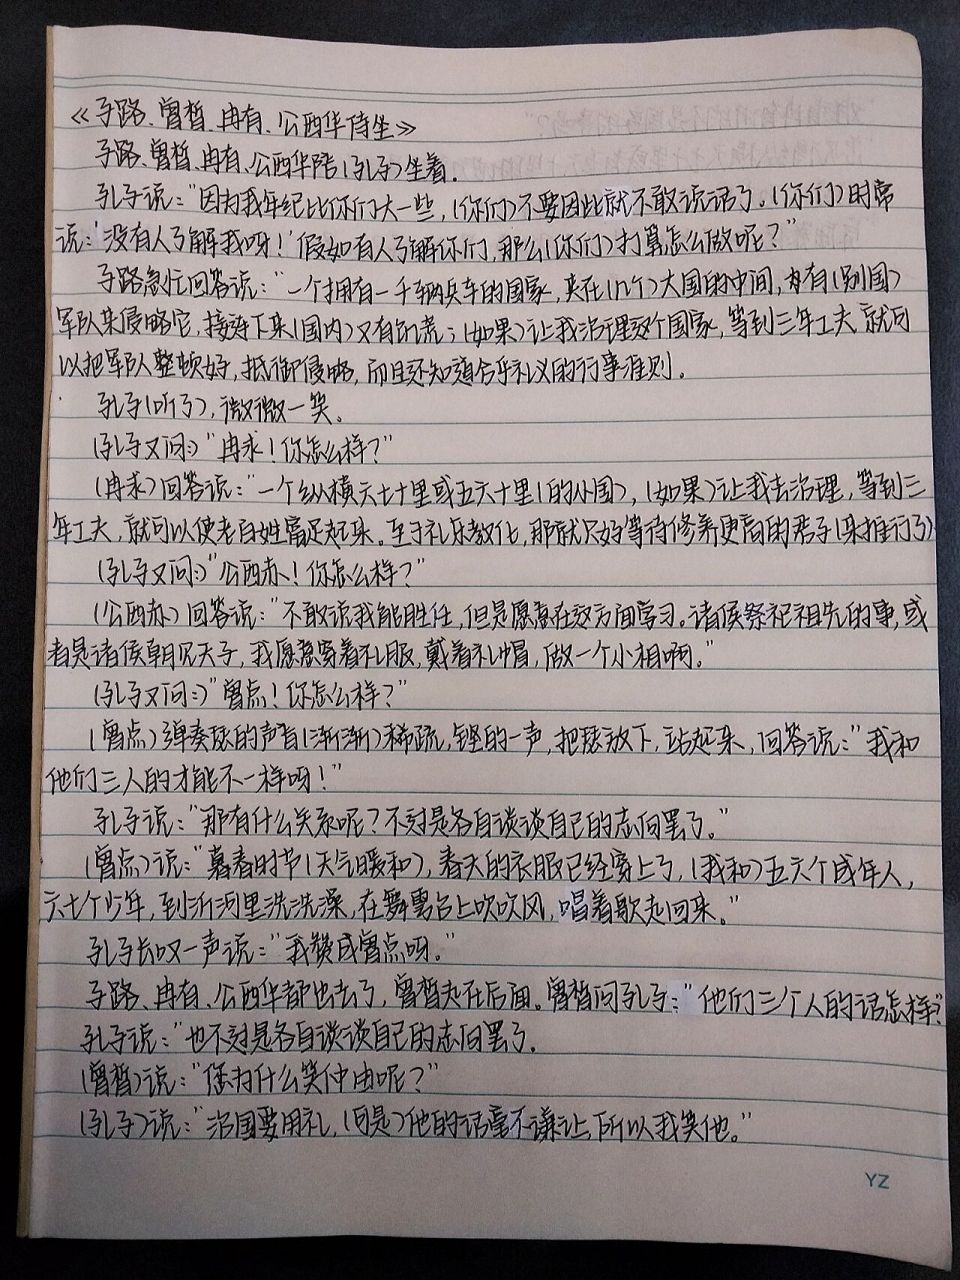 《子路、曾皙、冉有、公西华侍坐》
子路、曾皙、冉有、公西华陪(孔子)坐着.
孔子说:“因为我年纪比你们大一些,(你们)不要因此就不敢说话了。(你们)时常
说:‘没有人了解我呀!’假如有人了解你们,那么(你们)打算怎么做呢?”
子路急忙回答说:“一个拥有一千辆兵车的国家,夹在(几个)大国的中间,有(别国)
军队来侵略它,接连下来(国内)又有饥荒;(如果)让我治理这个国家,等到三年工夫,就可
以把军队整顿好,抵御侵略,而且还知道合乎礼义的行事准则。
孔子(听了),微微一笑。
(孔子又问:)“冉求!你怎么样?”
(冉求)回答说:“一个纵横六七十里或五六十里(的小国),(如果)让我去治理,等到三
年工夫,就可以使老百姓富足起来。至于礼乐教化,那就只好等待修养更高的君子(来推行了)
(孔子又问:)“公西赤!你怎么样?”
(公西赤)回答说:“不敢说我能胜任,但是愿意在这方面学习。诸侯祭祀祖先的事,或
者是诸侯朝见天子,我愿意穿着礼服,戴着礼帽,做一个小相啊。”
(孔子又问:)“曾点!你怎么样?”
(曾点)弹奏瑟的声音(渐渐)稀疏,铿的一声,把瑟放下,站起来,回答说:“我和
他们三人的才能不一样呀!”
孔子说:“那有什么关系呢?不过是各自谈谈自己的志向罢了。”
(曾点)说:“暮春时节(天气暖和),春天的衣服已经穿上了,(我和)五六个成年人,
六七个少年,到沂河里洗洗澡,在舞雩台上吹吹风,唱着歌走回来。”
孔子长叹一声说:“我赞成曾点呀。”
子路、冉有、公西华都出去了,曾皙走在后面。曾皙问孔子:“他们三个人的话怎样?”
孔子说:“也不过是各自谈谈自己的志向罢了.
(曾皙)说:“您为什么笑仲由呢?”
(孔子)说:“治国要用礼,(可是)他的话毫不谦让,所以我笑他。”
YZ